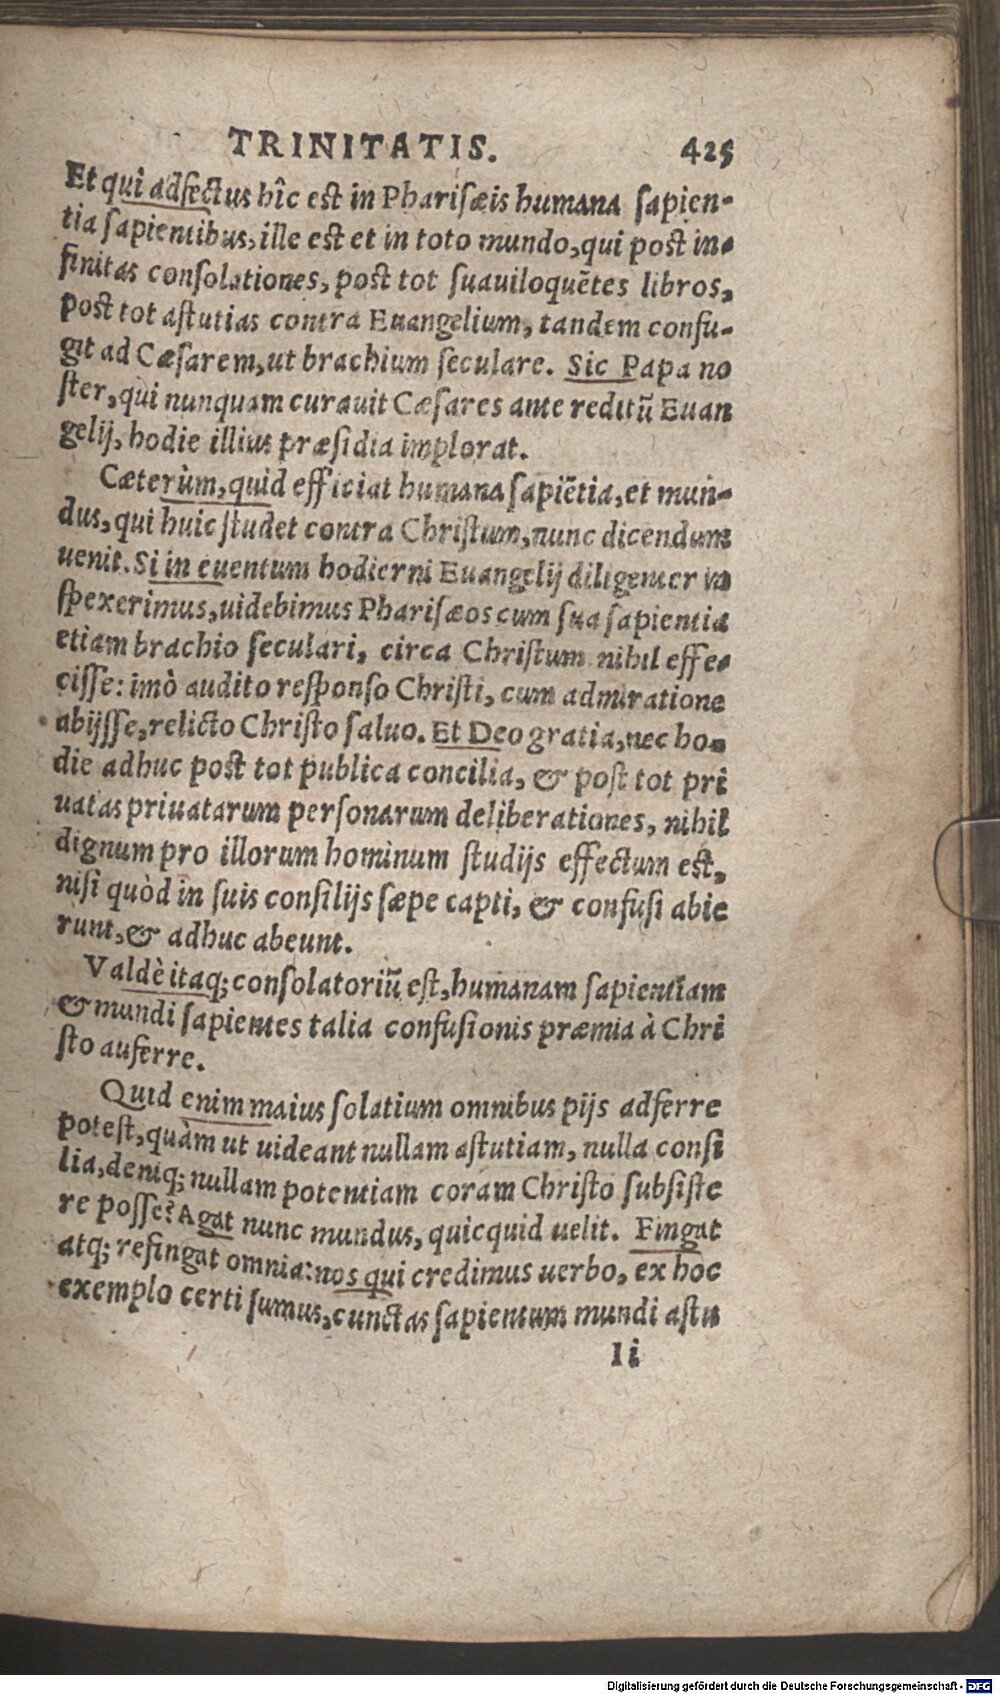 TRINITATIS. 425
Et qui adfectus hîc est in Pharisæis humana sapien-
tia sapientibus, ille est et in toto mundo, qui post in-
finitas consolationes, post tot suauiloquẽtes libros,
post tot astutias contra Euangelium, tandem confu-
git ad Cæsarem, ut brachium seculare. Sic Papa no
ster, qui nunquam curauit Cæsares ante reditũ Euan
gelij, hodie illius præsidia implorat.
Cæterùm, quid efficiat humana sapiẽtia, et mun-
dus, qui huic studet contra Christum, nunc dicendum
uenit. Si in euentum hodierni Euangelij diligenter in
spexerimus, uidebimus Pharisæos cum sua sapientia
etiam brachio seculari, circa Christum nihil effe-
cisse: imò audito responso Christi, cum admiratione
abijsse, relicto Christo saluo. Et Deo gratia, nec ho-
die adhuc post tot publica concilia, & post tot pri
uatas priuatarum personarum deliberationes, nihil
dignum pro illorum hominum studijs effectum est,
nisi quòd in suis consilijs sæpe capti, & confusi abie
runt, & adhuc abeunt.
Valdè itaq; consolatoriũ est, humanam sapientiam
& mundi sapientes talia confusionis præmia à Chri
sto auferre.
Quid enim maius solatium omnibus pijs adferre
potest, quàm ut uideant nullam astutiam, nulla consi
lia, deniq; nullam potentiam coram Christo subsiste
re posse? Agat nunc mundus, quicquid uelit. Fingat
atq; refingat omnia: nos qui credimus uerbo, ex hoc
exemplo certi sumus, cunctas sapientum mundi astu
Ii
Digitalisierung gefördert durch die Deutsche Forschungsgemeinschaft - DFG